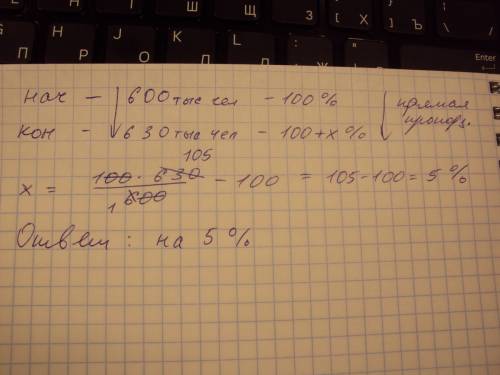 нач – 600 тыс чел – 100 % прямая
кон – 630 тыс чел – 100 + x % пропорц.
105
x = 100 · 630 / 600 – 100 = 105 – 100 = 5 %
1
Ответ : на 5 %
G H J K L
П Р О Л Д Ж Э
Ш Щ З Х Ъ
[ ]
Enter